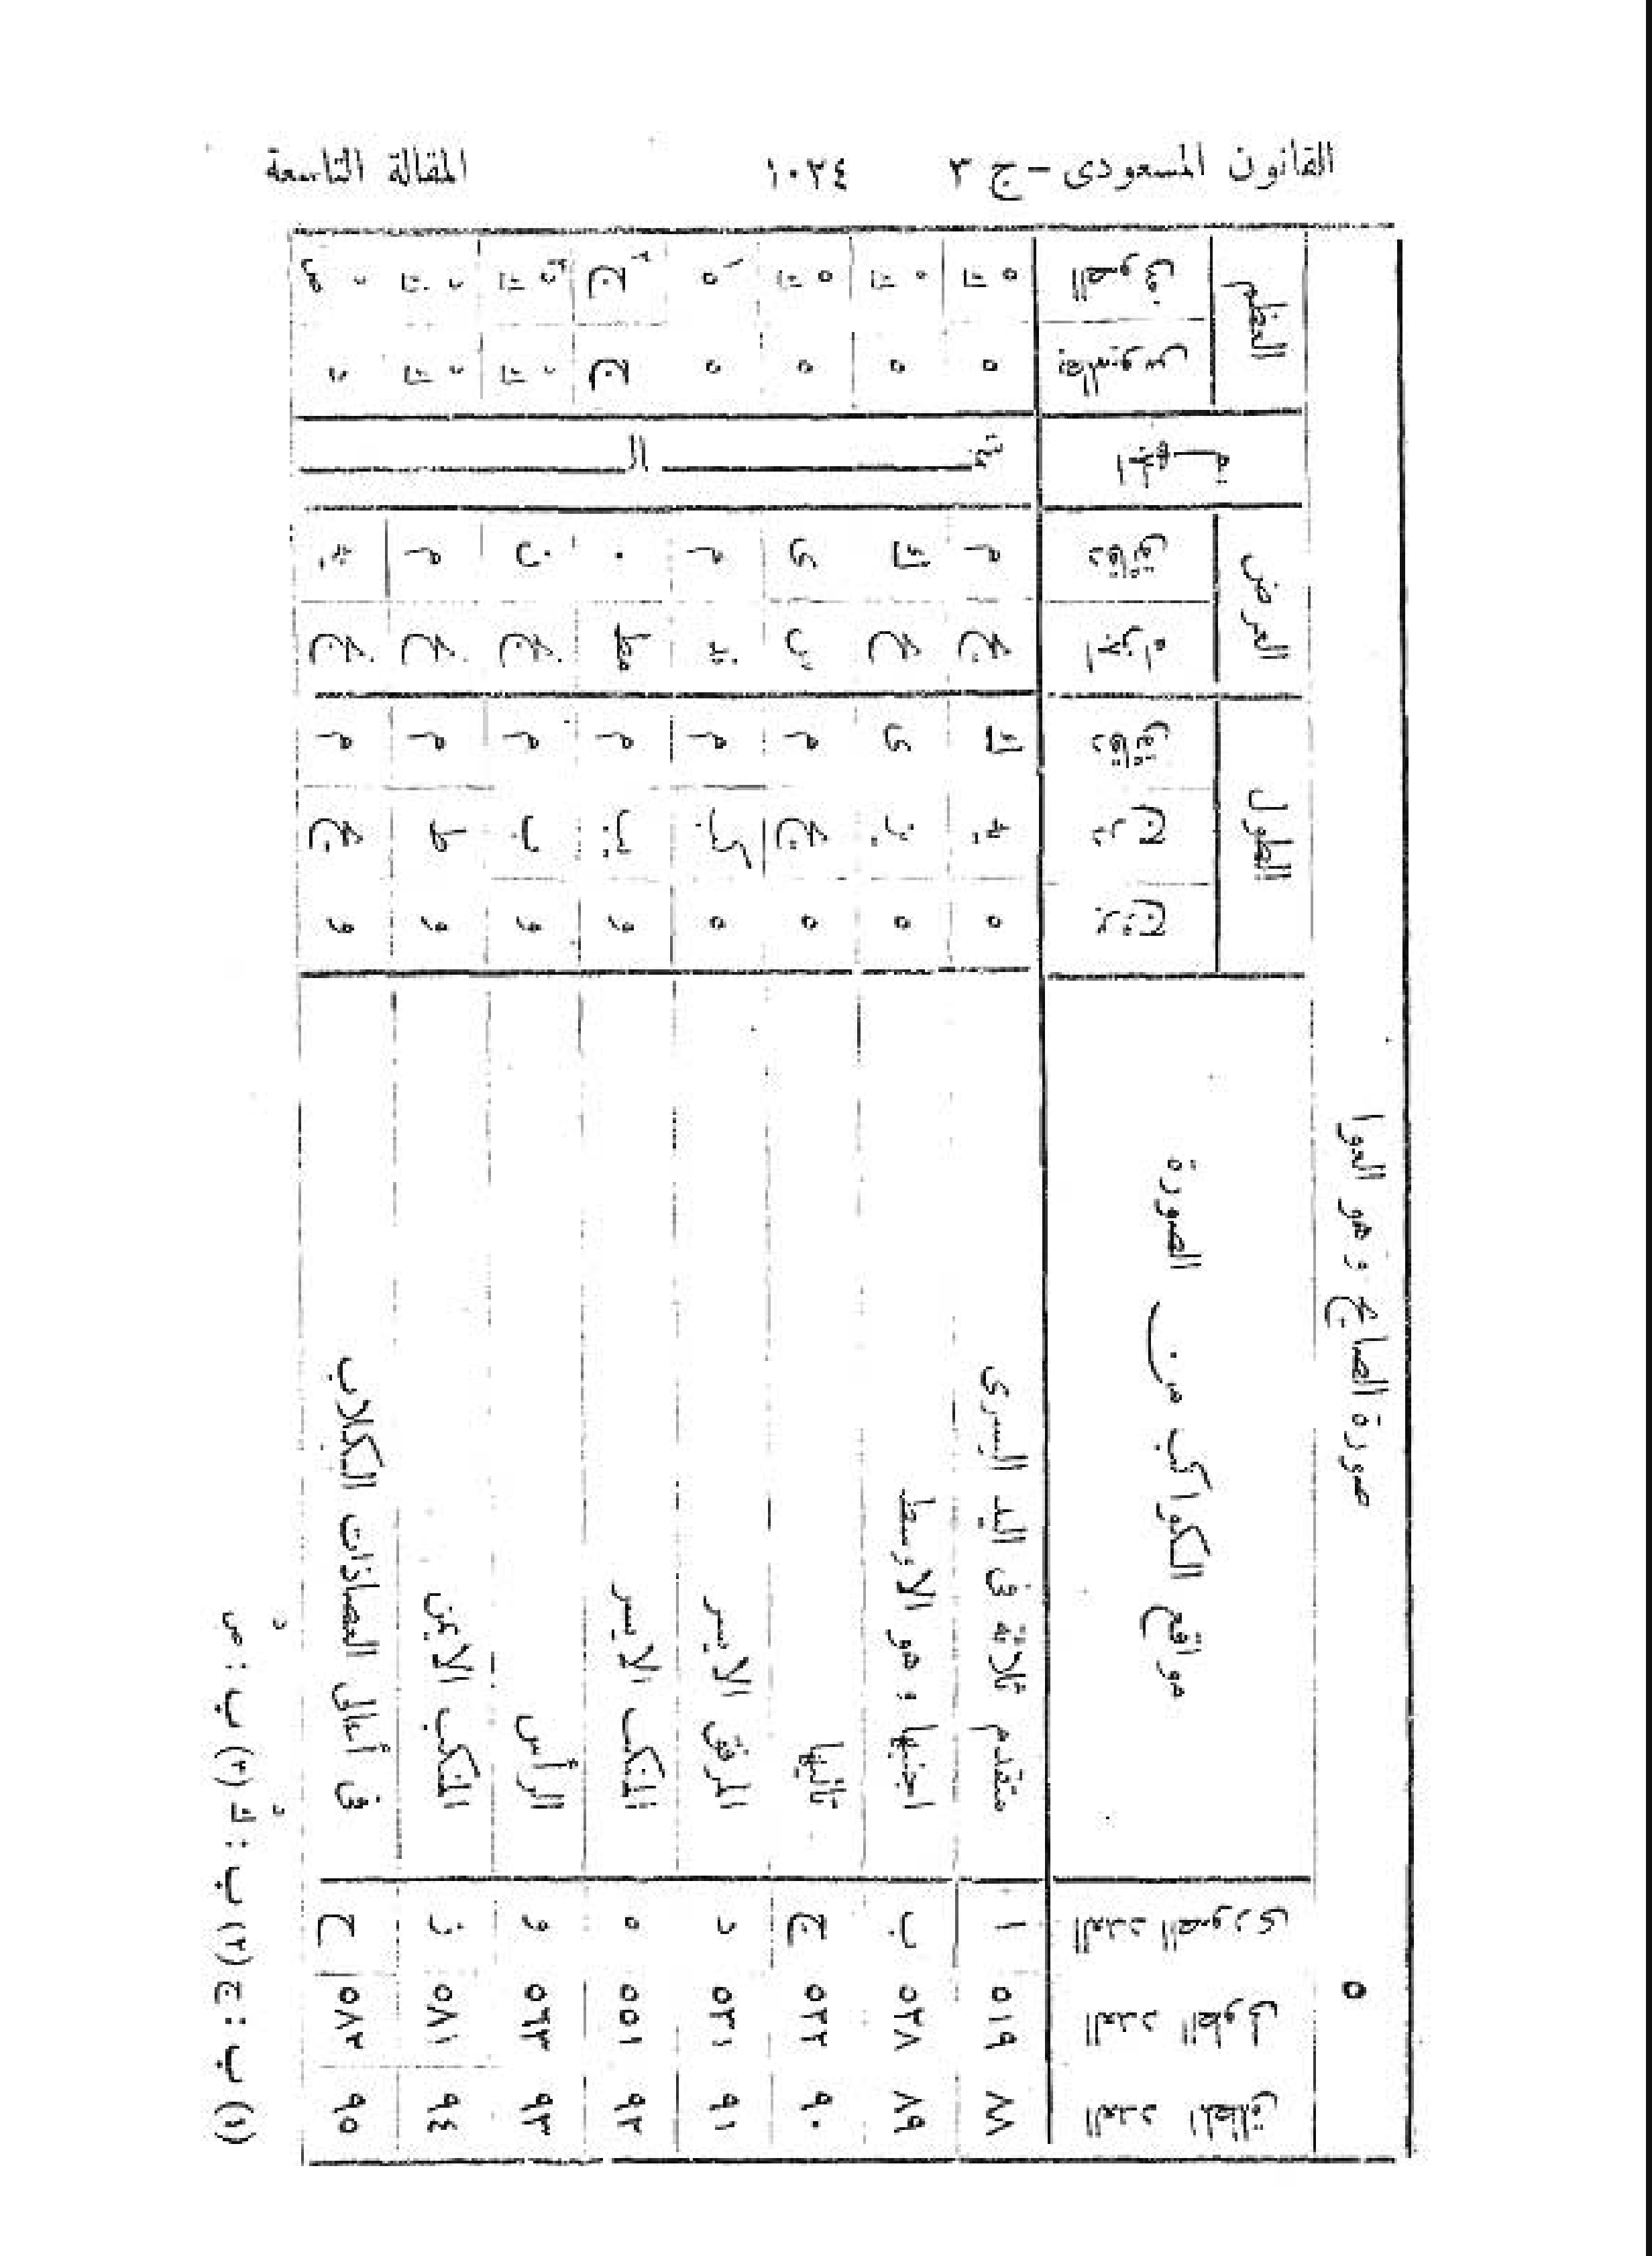 القانون المسعودى - ج ٣ ١٠٢٤ المقالة التاسعة
٥ صورة الصياح و هو العوا
العدد المطلق
العدد الطولى
العدد الصورى
مواقع الكواكب من الصورة
الطول
بروج درج دقائق
العرض
اجزاء دقائق
الجهة
العظم
بطلميوس الصوفى
٨٨ ٥١٩ ا متقدم ثلاثة فى اليد اليسرى ه يه ك نح م ه ه ك
٨٩ ٥٢٨ ب اجنبها و هو الاوسط ه يز ى نح ك ه ه ك
٩٠ ٥٢٢ ج ثالثها ه يح م س ى ه ه ك
٩١ ٥٣١ د المرفق الايسر ه كب م ند م ه ه
٩٢ ٥٥١ ه المنكب الايسر و م مط ٠ ج ج
٩٣ ٥٦٣ و الرأس و م نج ن
٩٤ ٥٨١ ز المنكب الايمن و م م
٩٥ ٥٨٢ ح فى أعالى العصا ذات الكلاب و م يه
الشمال
(١) ب : ج (٢) ب : ك (٣) ب : ص